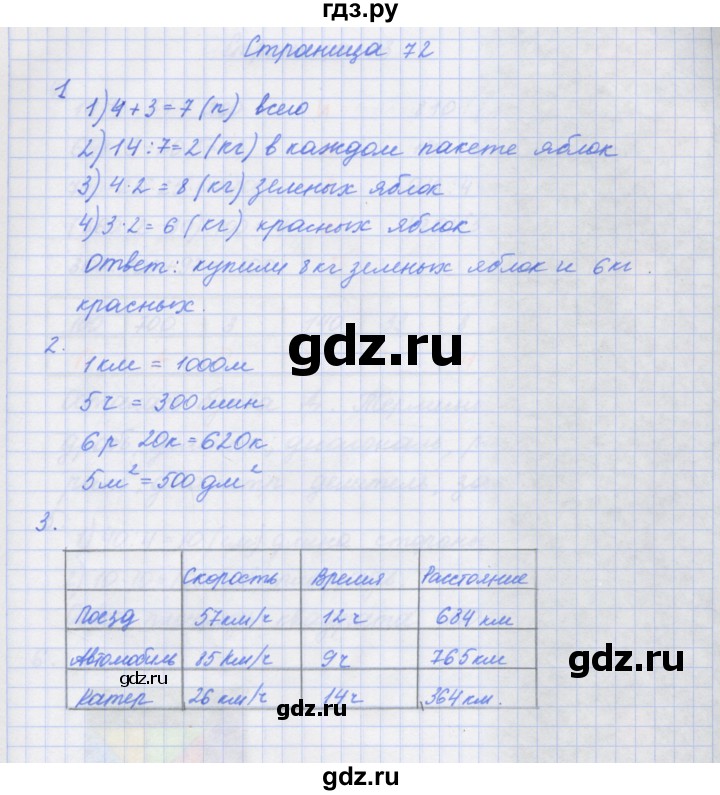 гдз.ру
Страница 72
1
1) 4 + 3 = 7 (п) всего
2) 14 : 7 = 2 (кг) в каждом пакете яблок
3) 4 · 2 = 8 (кг) зеленых яблок
4) 3 · 2 = 6 (кг) красных яблок
Ответ: купили 8 кг зеленых яблок и 6 кг.
красных.
www.gdz.ru
2.
1 км = 1000 м
5 ч = 300 мин
6 р 20к = 620к
5 м² = 500 дм²
3.
Скорость Время Расстояние
Поезд 57 км/ч 12 ч 684 км
Автомобиль 85 км/ч 9 ч 765 км
Катер 26 км/ч 14 ч 364 км.
gdz.ru
gdz.ru
gdz.ru
gdz.ru